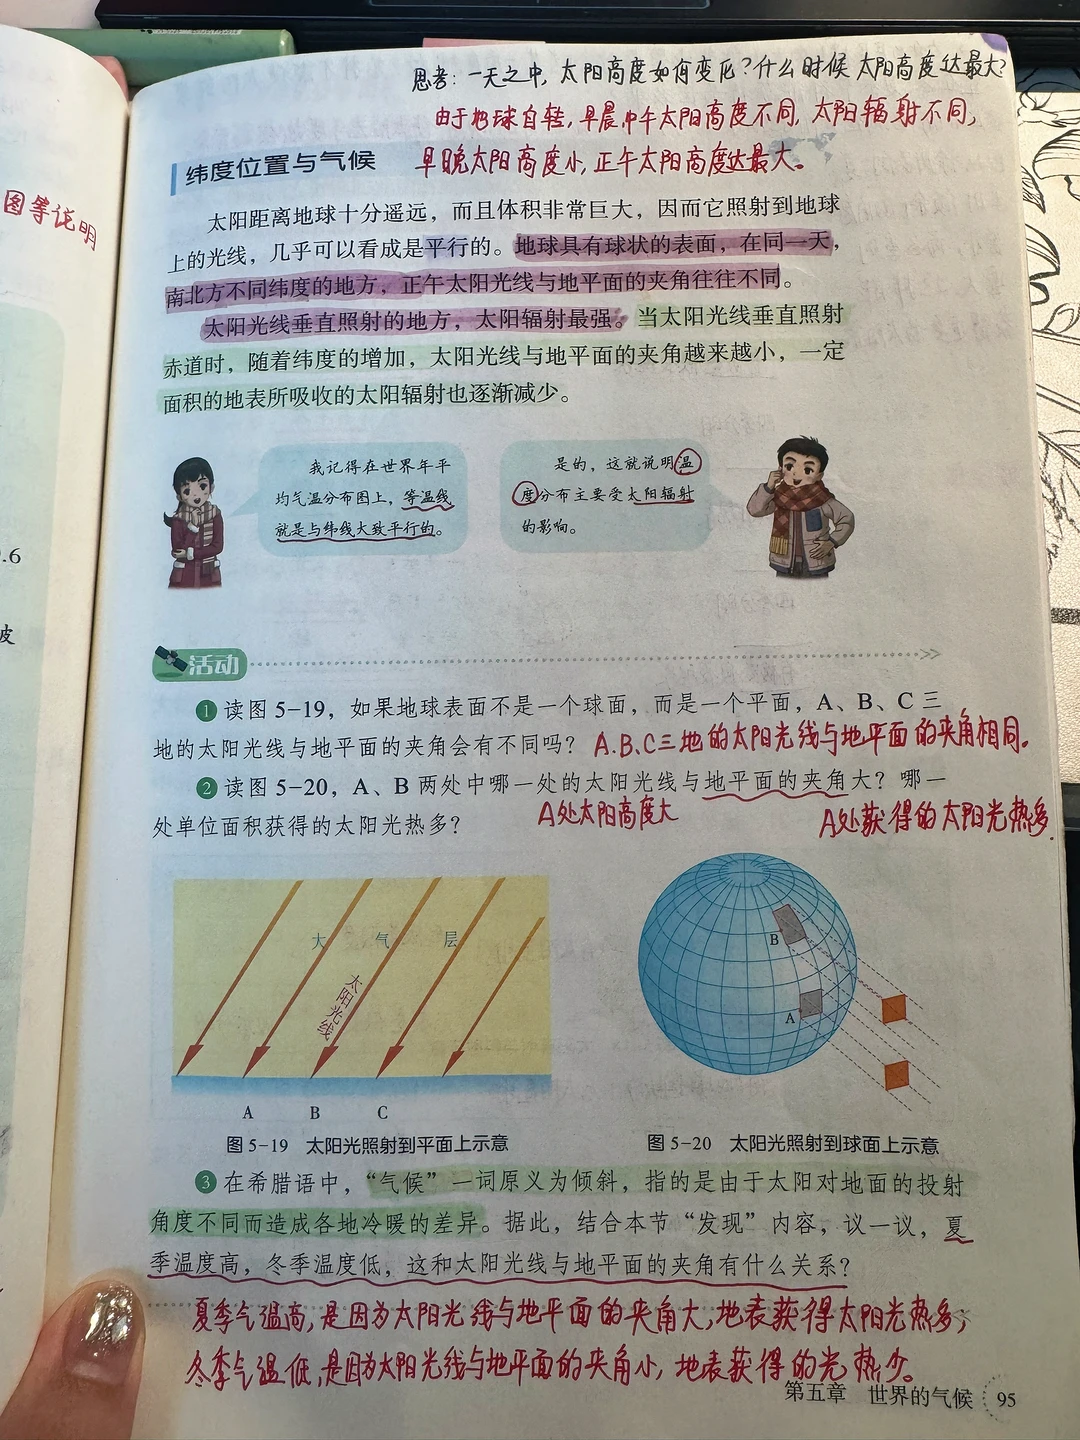 思考：一天之中，太阳高度如何变化？什么时候太阳高度达最大？
由于地球自转，早晨中午太阳高度不同，太阳辐射不同，
早晚太阳高度小，正午太阳高度达最大。
图等说明
纬度位置与气候
太阳距离地球十分遥远，而且体积非常巨大，因而它照射到地球
上的光线，几乎可以看成是平行的。地球具有球状的表面，在同一天，
南北方不同纬度的地方，正午太阳光线与地平面的夹角往往不同。
太阳光线垂直照射的地方，太阳辐射最强。当太阳光线垂直照射
赤道时，随着纬度的增加，太阳光线与地平面的夹角越来越小，一定
面积的地表所吸收的太阳辐射也逐渐减少。
我记得在世界年平
均气温分布图上，等温线
就是与纬线大致平行的。
是的，这就说明温
度分布主要受太阳辐射
的影响。
.6
皮
活动
1 读图 5-19，如果地球表面不是一个球面，而是一个平面，A、B、C 三
地的太阳光线与地平面的夹角会有不同吗？ A.B.C三地的太阳光线与地平面的夹角相同。
2 读图 5-20，A、B 两处中哪一处的太阳光线与地平面的夹角大？哪一
处单位面积获得的太阳光热多？ A处太阳高度大 A处获得的太阳光热多.
大 气 层
太阳光线
A B C
图 5-19 太阳光照射到平面上示意
B
A
图 5-20 太阳光照射到球面上示意
3 在希腊语中，“气候”一词原义为倾斜，指的是由于太阳对地面的投射
角度不同而造成各地冷暖的差异。据此，结合本节“发现”内容，议一议，夏
季温度高，冬季温度低，这和太阳光线与地平面的夹角有什么关系？
夏季气温高，是因为太阳光线与地平面的夹角大，地表获得太阳光热多；
冬季气温低，是因为太阳光线与地平面的夹角小，地表获得的光热少。
第五章 世界的气候 95